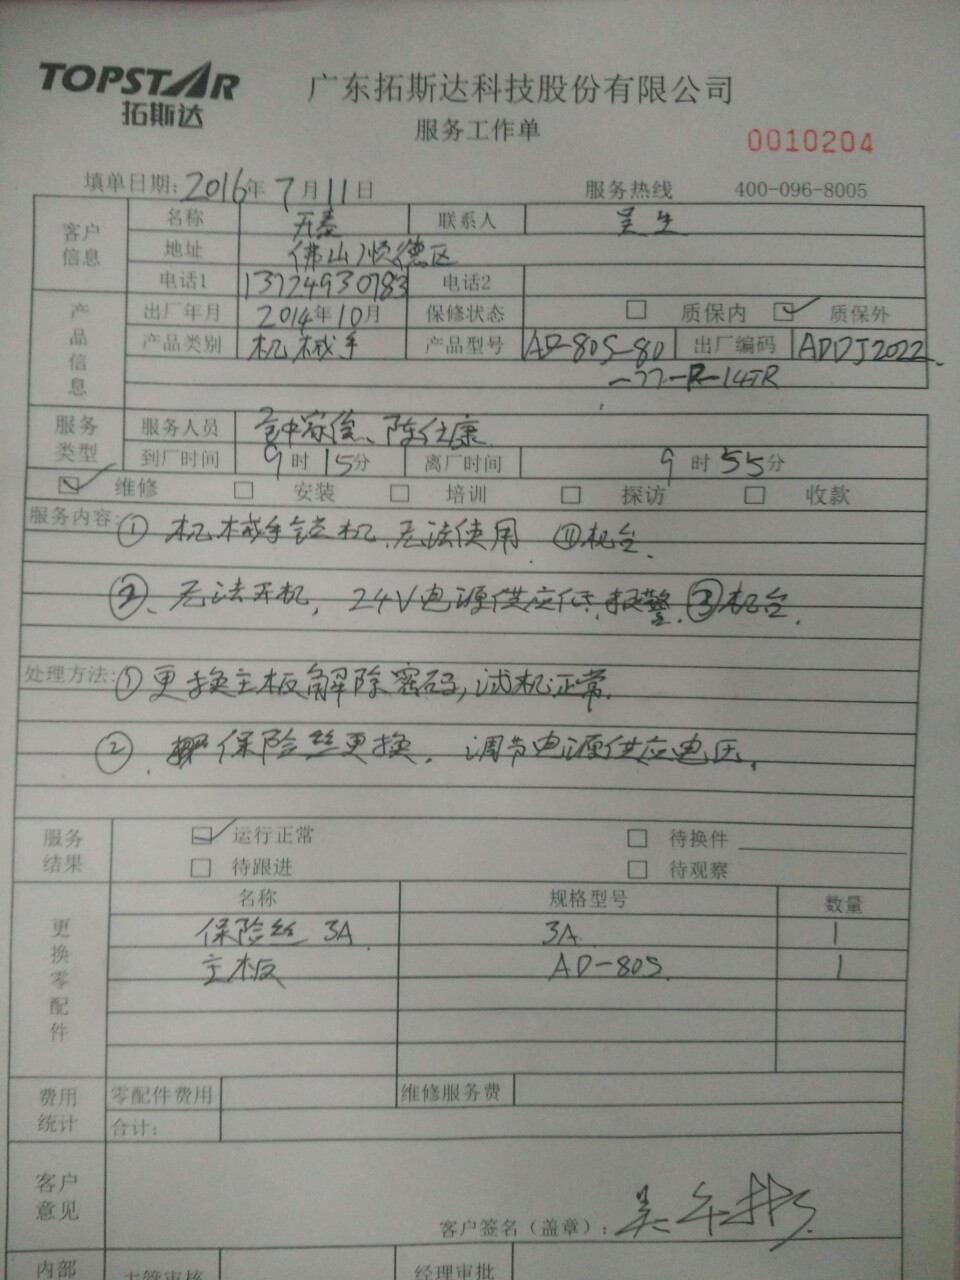 TOPSTAR
拓斯达
广东拓斯达科技股份有限公司
服务工作单
0010204
填单日期:2016年7月11日 服务热线 400-096-8005
客户信息
名称 开泰 联系人 吴生
地址 佛山顺德区
电话1 13724930783 电话2
产品信息
出厂年月 2014年10月 保修状态 质保内 质保外
产品类别 机械手 产品型号 AD-80S-80 出厂编码 ADDJ2022
-77-R-14TR
服务类型
服务人员 陈仕康
到厂时间 9时15分 离厂时间 9时55分
维修 安装 培训 探访 收款
服务内容:① 机械手锁机,无法使用 ⑪机台.
②、无法开机,24V电源供应低,报警.③机台.
处理方法:①更换主板解除密码,试机正常.
②.保险丝更换.调节电源供应电压.
服务结果
运行正常 待换件
待跟进 待观察
更换零配件
名称 规格型号 数量
保险丝 3A 3A 1
主板 AD-80S 1
费用统计
零配件费用 维修服务费
合计:
客户意见
客户签名(盖章): 吴
内部
主管审核 经理审批